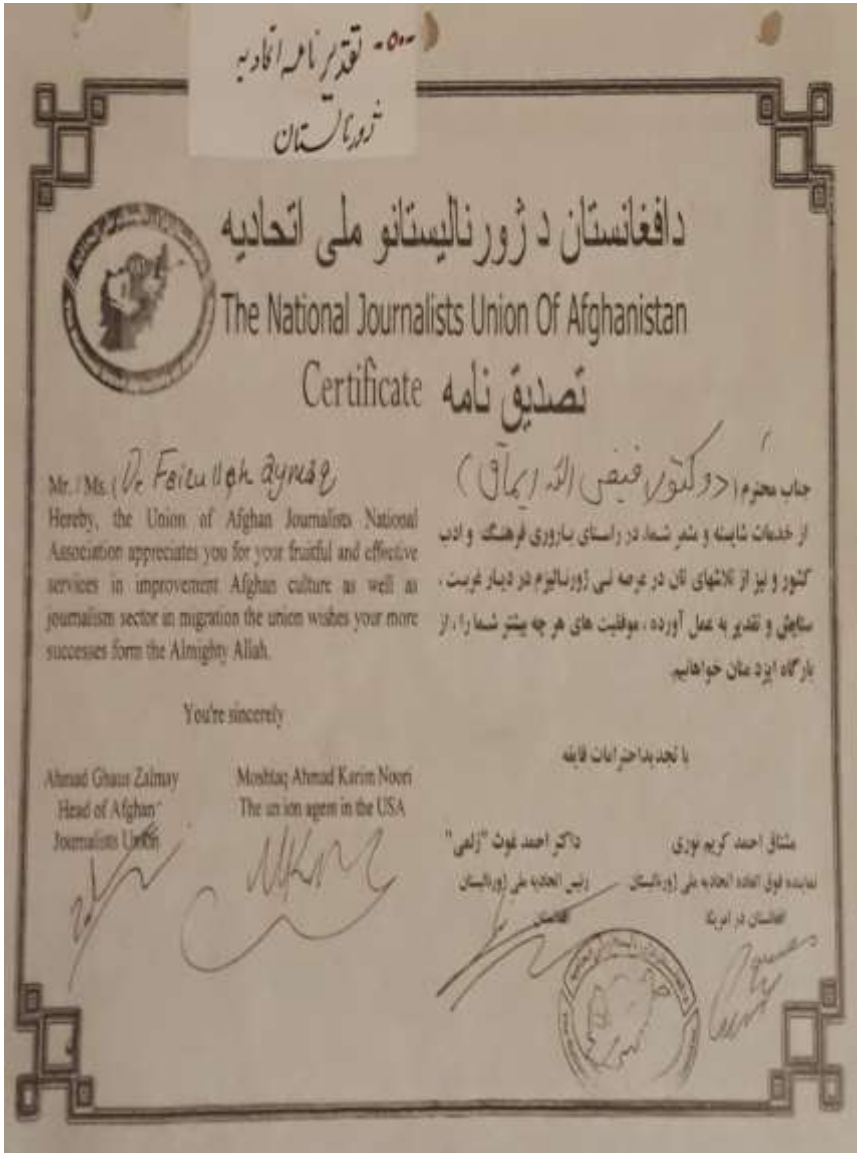 -۵۰۰ تقدیر نامه اتحادیه
ژورنالستان
دافغانستان د ژورنالیستانو ملی اتحادیه
The National Journalists Union Of Afghanistan
Certificate تصدیق نامه
Mr. / Ms. ( Dr Faizullah aymaq
Hereby, the Union of Afghan Journalists National
Association appreciates you for your fruitful and effective
services in improvement Afghan culture as well as
journalism sector in migration the union wishes your more
successes form the Almighty Allah.
You're sincerely
Ahmad Ghaus Zalmay
Head of Afghan
Journalists Union
Moshtaq Ahmad Karim Noori
The union agent in the USA
جناب محترم ( دوکتور فیض الله ایماق )
از خدمات شایسته و مثمر شما، در راستای باروری فرهنگ و ادب
کشور و نیز از تلاشهای تان در عرصه نی ژورنالیزم در دیار غربت ،
ستایش و تقدیر به عمل آورده ، موفقیت های هر چه بیشتر شما را ، از
بارگاه ایزد منان خواهانیم.
با تجدید احترامات فایقه
مشتاق احمد کریم نوری
نماینده فوق العاده اتحادیه ملی ژورنالیستان
افغانستان در امریکا
داکتر احمد غوث "زلمی"
رئیس اتحادیه ملی ژورنالیستان
افغانستان